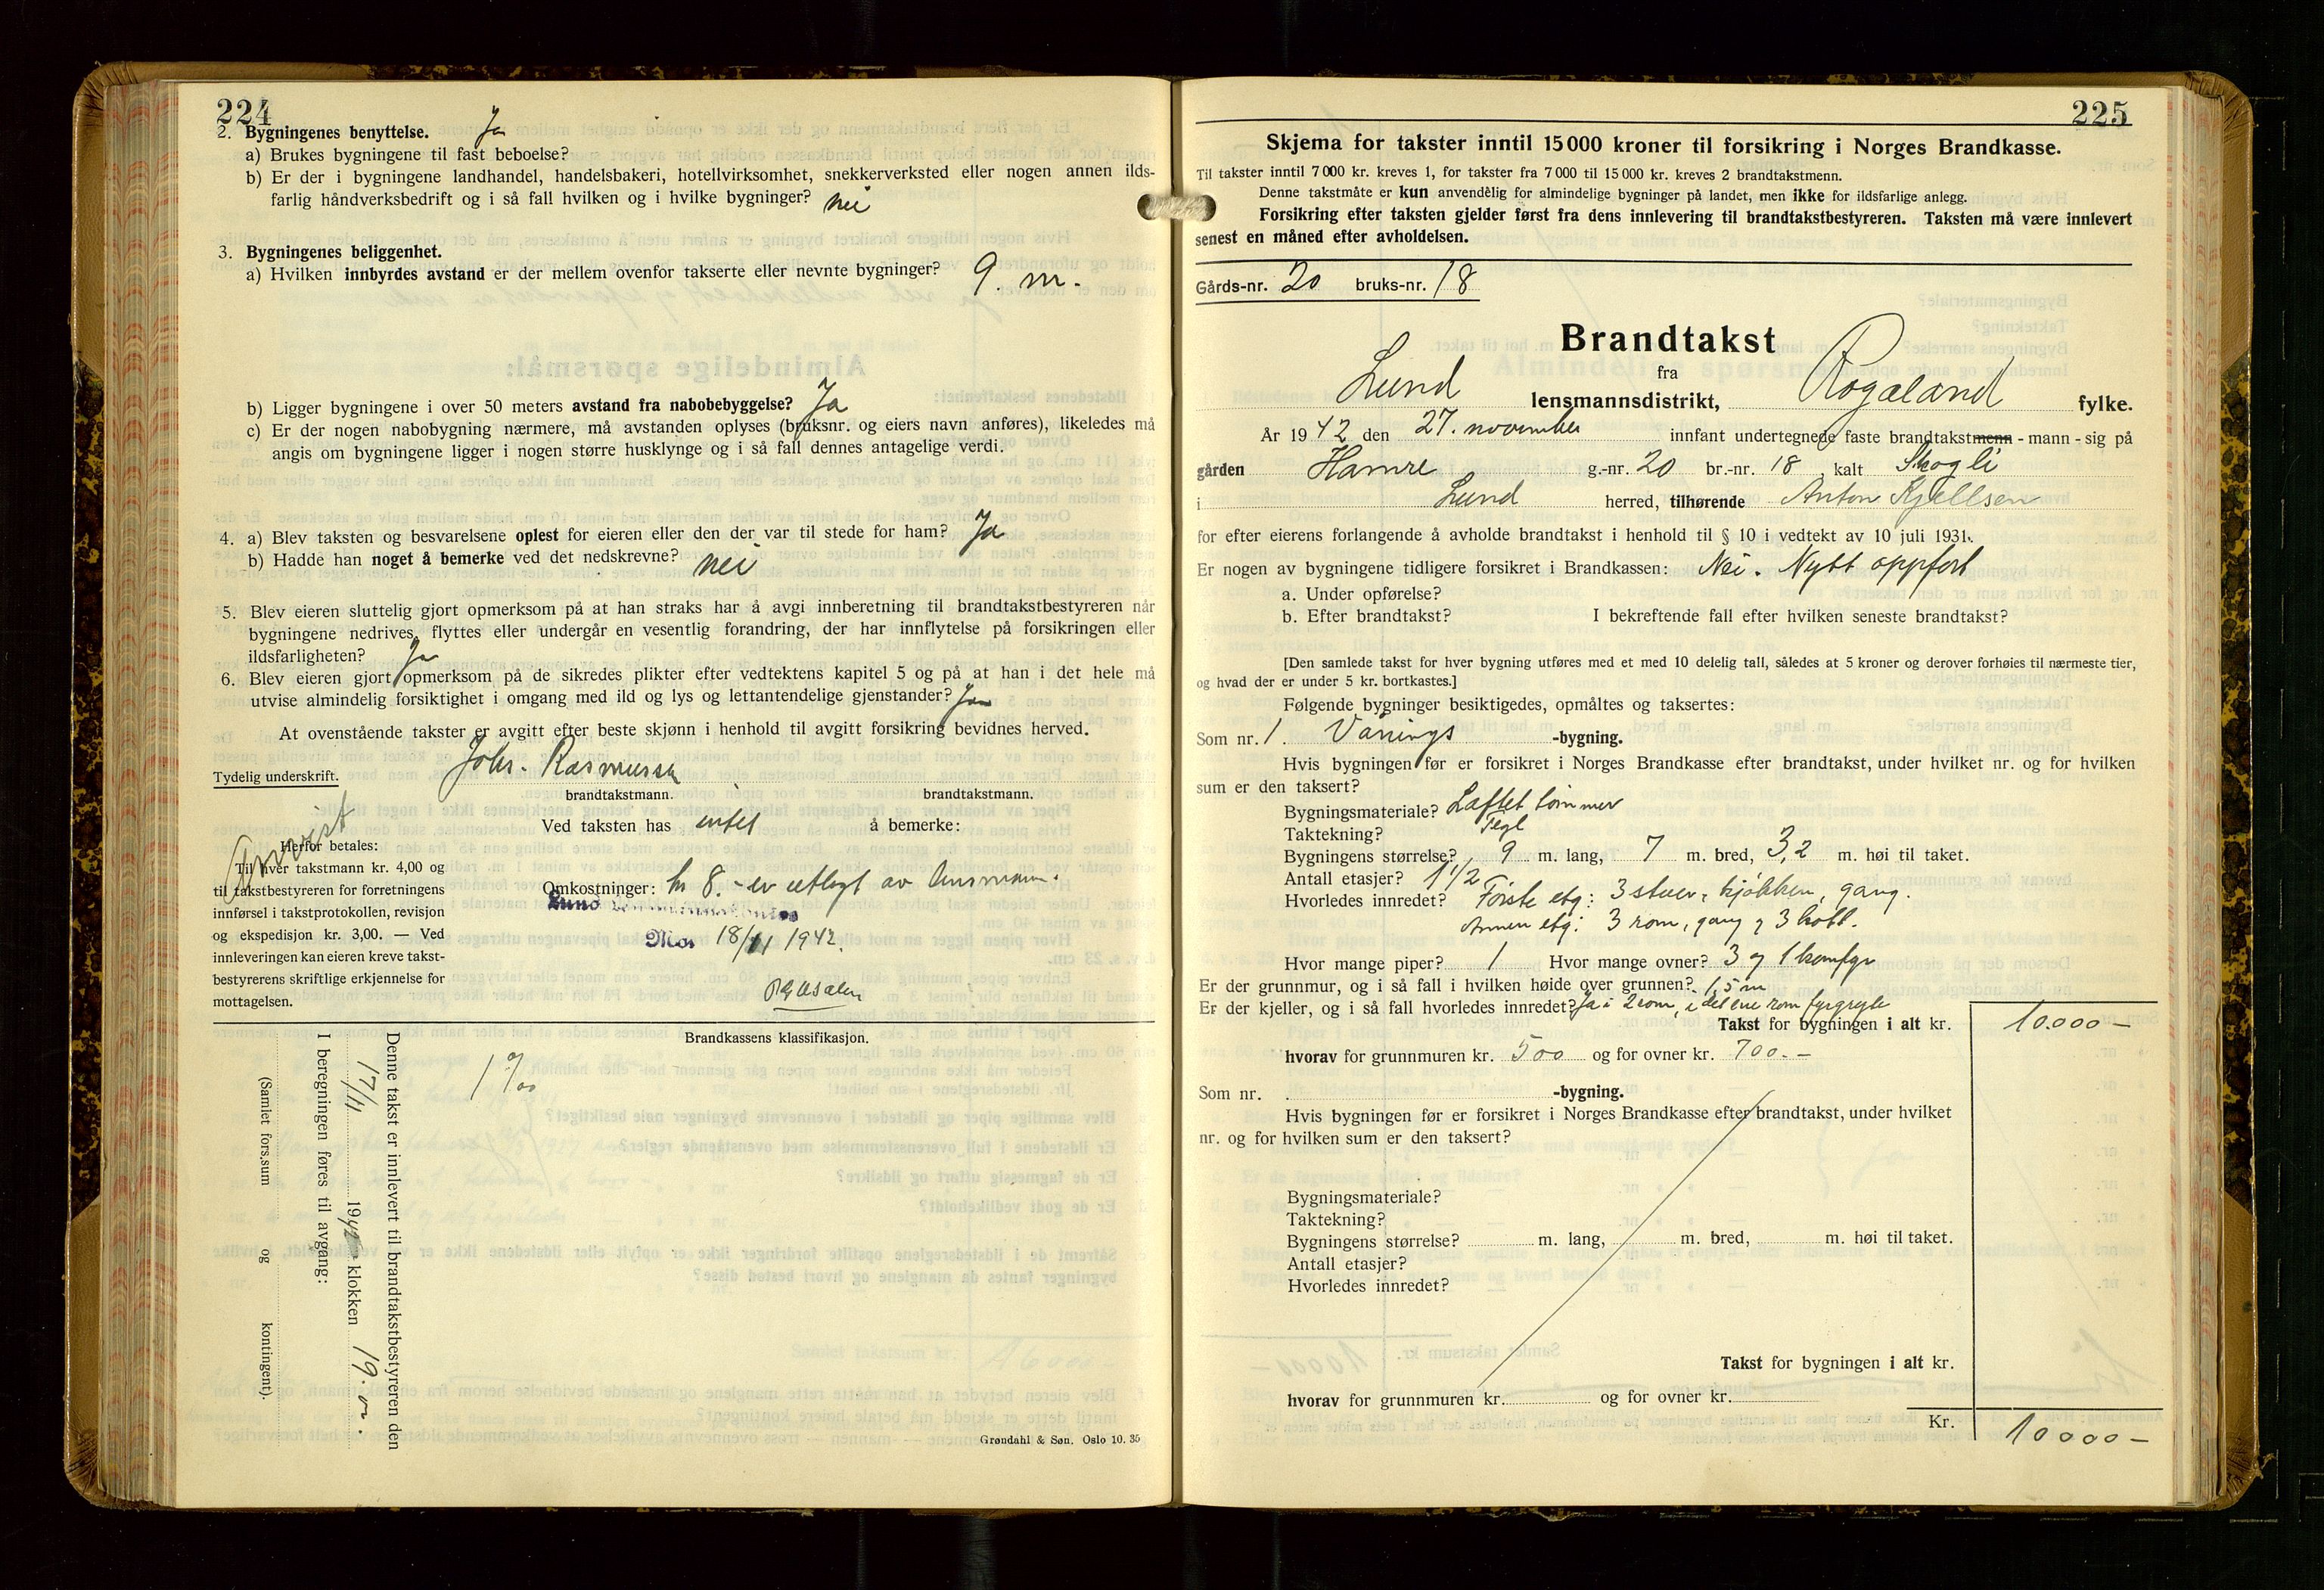 224
2. Bygningenes benyttelse. Ja
a) Brukes bygningene til fast beboelse?
b) Er der i bygningene landhandel, handelsbakeri, hotellvirksomhet, snekkerverksted eller nogen annen ilds-
farlig håndverksbedrift og i så fall hvilken og i hvilke bygninger? nei
3. Bygningenes beliggenhet.
a) Hvilken innbyrdes avstand er der mellem ovenfor takserte eller nevnte bygninger? 9. m.
b) Ligger bygningene i over 50 meters avstand fra nabobebyggelse? Ja
c) Er der nogen nabobygning nærmere, må avstanden oplyses (bruksnr. og eiers navn anføres), likeledes må
angis om bygningene ligger i nogen større husklynge og i så fall dennes antagelige verdi.
4. a) Blev taksten og besvarelsene oplest for eieren eller den der var til stede for ham? Ja
b) Hadde han noget å bemerke ved det nedskrevne? nei
5. Blev eieren sluttelig gjort opmerksom på at han straks har å avgi innberetning til brandtakstbestyreren når
bygningene nedrives, flyttes eller undergår en vesentlig forandring, der har innflytelse på forsikringen eller
ildsfarligheten? Ja
6. Blev eieren gjort opmerksom på de sikredes plikter efter vedtektens kapitel 5 og på at han i det hele må
utvise almindelig forsiktighet i omgang med ild og lys og lettantendelige gjenstander? Ja
At ovenstående takster er avgitt efter beste skjønn i henhold til avgitt forsikring bevidnes herved.
Tydelig underskrift. Johs. Rasmussen
brandtakstmann. brandtakstmann.
Ved taksten has intet å bemerke:
Herfor betales:
Til hver takstmann kr. 4,00 og
til takstbestyreren for forretningens
innførsel i takstprotokollen, revisjon
og ekspedisjon kr. 3,00. — Ved
innleveringen kan eieren kreve takst-
bestyrerens skriftlige erkjennelse for
mottagelsen.
Omkostninger: kr 8.- er utlagt av lensmann.
Lund lensmannskontor
Moi 18/11 1942.
Brandkassens klassifikasjon.
1 ‰
Denne takst er innlevert til brandtakstbestyreren den
17/11 1942 klokken 19.00.
I beregningen føres til avgang:
(Samlet fors.sum og kontingent).
Grøndahl & Søn. Oslo 10. 35
225
Skjema for takster inntil 15 000 kroner til forsikring i Norges Brandkasse.
Til takster inntil 7 000 kr. kreves 1, for takster fra 7 000 til 15 000 kr. kreves 2 brandtakstmenn.
Denne takstmåte er kun anvendelig for almindelige bygninger på landet, men ikke for ildsfarlige anlegg.
Forsikring efter taksten gjelder først fra dens innlevering til brandtakstbestyreren. Taksten må være innlevert
senest en måned efter avholdelsen.
Gårds-nr. 20 bruks-nr. 18
Brandtakst
fra
Lund lensmannsdistrikt, Rogaland fylke.
År 1942 den 27. november innfant undertegnede faste brandtakstmenn - mann - sig på
gården Hamre g.-nr. 20 br.-nr. 18 kalt Skogli
i Lund herred, tilhørende Anton Kjellsen
for efter eierens forlangende å avholde brandtakst i henhold til § 10 i vedtekt av 10 juli 1931.
Er nogen av bygningene tidligere forsikret i Brandkassen: Nei. Nytt oppført
a. Under opførelse?
b. Efter brandtakst? I bekreftende fall efter hvilken seneste brandtakst?
[Den samlede takst for hver bygning utføres med et med 10 delelig tall, således at 5 kroner og derover forhøies til nærmeste tier,
og hvad der er under 5 kr. bortkastes.]
Følgende bygninger besiktigedes, opmåltes og taksertes:
Som nr. 1. Vånings -bygning.
Hvis bygningen før er forsikret i Norges Brandkasse efter brandtakst, under hvilket nr. og for hvilken
sum er den taksert?
Bygningsmateriale? Laftet tømmer
Taktekning? Tegl
Bygningens størrelse? 9 m. lang, 7 m. bred, 3,2 m. høi til taket.
Antall etasjer? 1 1/2
Hvorledes innredet? Første etg: 3 stuer, kjøkken, gang.
Annen etg: 3 rom, gang og 3 kott.
Hvor mange piper? 1 Hvor mange ovner? 3 og 1 komfyr
Er der grunnmur, og i så fall i hvilken høide over grunnen? 1,5 m
Er der kjeller, og i så fall hvorledes innredet? Ja i 2 rom, i det ene rom fyrgryte
Takst for bygningen i alt kr. 10.000 —
hvorav for grunnmuren kr. 500 og for ovner kr. 700.-
Som nr. -bygning.
Hvis bygningen før er forsikret i Norges Brandkasse efter brandtakst, under hvilket
nr. og for hvilken sum er den taksert?
Bygningsmateriale?
Taktekning?
Bygningens størrelse? m. lang, m. bred, m. høi til taket.
Antall etasjer?
Hvorledes innredet?
Takst for bygningen i alt kr.
hvorav for grunnmuren kr. og for ovner kr.
Kr. 10000 —